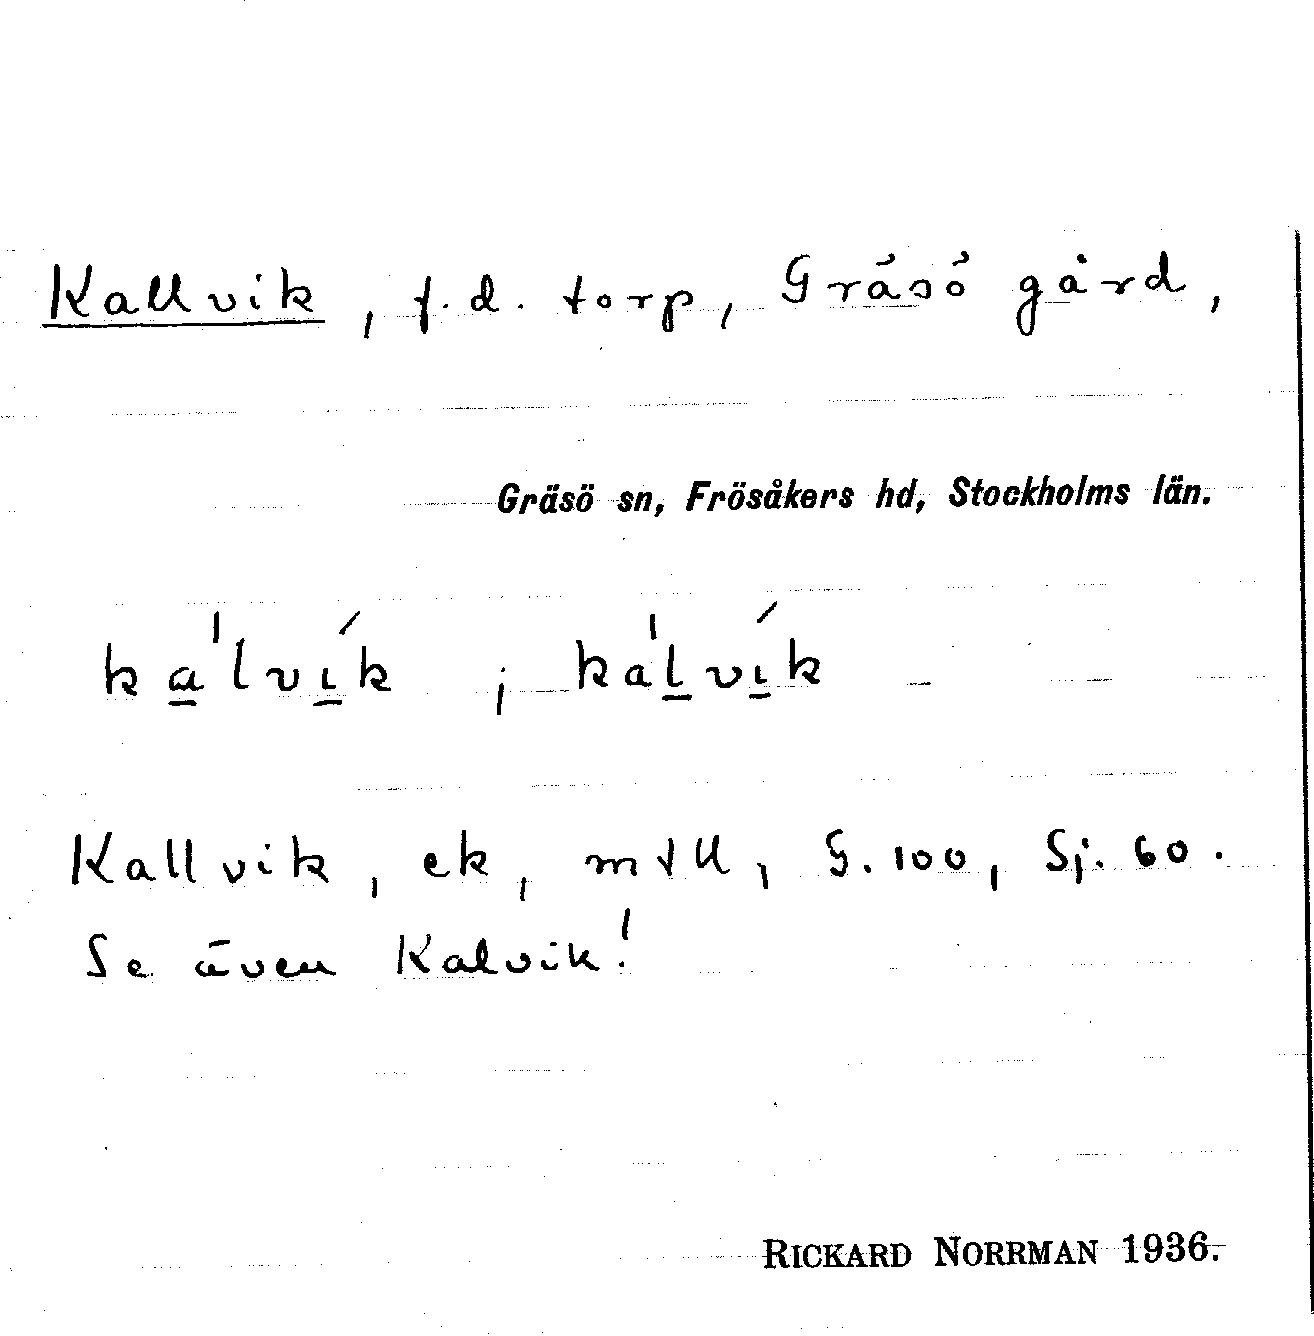 Kallvik, f.d. torp, Gräsö gård,
Gräsö sn, Frösåkers hd, Stockholms län.
ka̲ˈlvı̲́k ; kaˈl̲vı̲́k
Kallvik, ek, mtll, G. 100, Sj. 60.
Se även Kalvik!
RICKARD NORRMAN 1936.